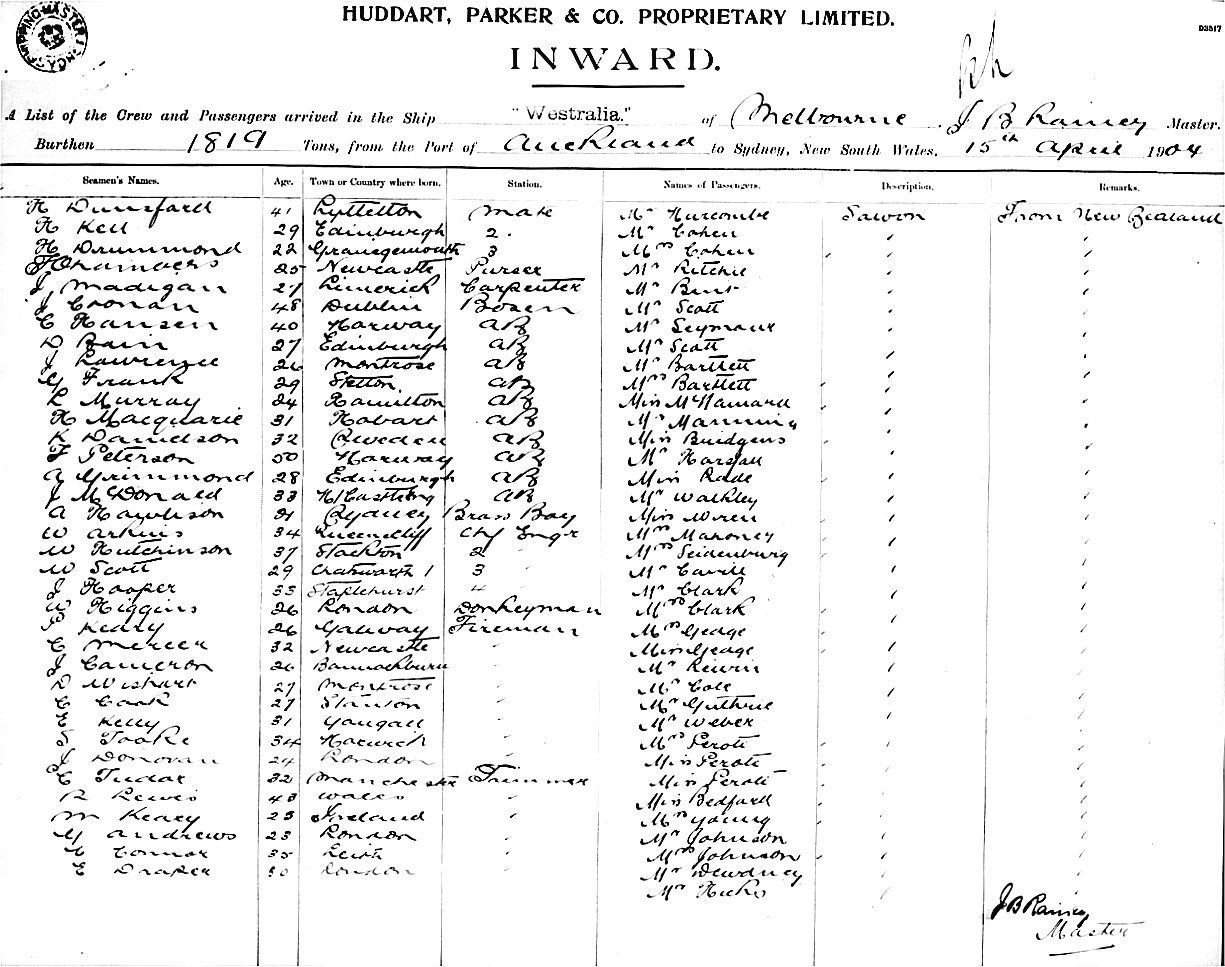 HUDDART, PARKER & CO. PROPRIETARY LIMITED.
D3517
INWARD.
A List of the Crew and Passengers arrived in the Ship "Westralia." of Melbourne J B Rainey Master.
Burthen 1819 Tons, from the Port of Auckland to Sydney, New South Wales, 15th April 1904
Seamen's Names. Age. Town or Country where born. Station. Names of Passengers. Description. Remarks.
H Dunsfard 41 Lyttelton Mate Mr Hurcombe Saloon From New Zealand
H Kell 29 Edinburgh 2. Mr Cohen
H Drummond 22 Grangemouth 3 Mrs Cohen
J Chambers 25 Newcastle Purser Mr Ritchie
J Madigan 27 Limerick Carpenter Mr
J Cronan 48 Dublin Bosen Mr Scott
C Hansen 40 Norway AB Mr Seymour
D Bain 27 Edinburgh AB Mr Scott
J Lawrence 26 Montrose AB Mr Bartlett
G Frank 29 Stetton AB Mrs Bartlett
L Murray 24 Hamilton AB Miss McNamara
H Macquarie 31 Hobart AB Mr Manning
K Danielson 32 Sweden AB Miss Budgens
F Peterson 50 Norway AB Mr Horsfall
A Grimmond 28 Edinburgh AB Miss Rade
J McDonald 33 AB Mr Walkley
A 21 Sydney Brass Boy Miss Wren
W Arkins 34 Queenscliff Chf Engr Mrs Maroney
W Hutchinson 37 Stockton 2 Mrs Seidenburg
W Scott 29 Chatsworth I 3 Mr Cavill
J Hooper 33 Staplehurst 4 Mr Clark
W Higgins 26 London Donkeyman Mrs Clark
P Keary 26 Galway Fireman Mrs Geage
C Mercer 32 Newcastle Miss Geage
J Cameron 26 Bannockburn Mr Rewin
D Wishart 27 Montrose Mr Cole
C Cook 27 Stanton Mr Guthrie
E Kelly 31 Yougall Mr Weber
T Tooke 34 Harwich Mrs Perott
J Donovan 24 London Miss Perott
C Tudor 32 Manchester Trimmer Miss Perott
R Lewis 43 Wales Miss Bedford
M Keary 23 Ireland Mrs Young
G Andrews 23 London Mr Johnson
C Connor 35 Leith Mrs Johnson
E Draper 30 London Mr Dewdney
Mr Hicks
J B Rainey
Master